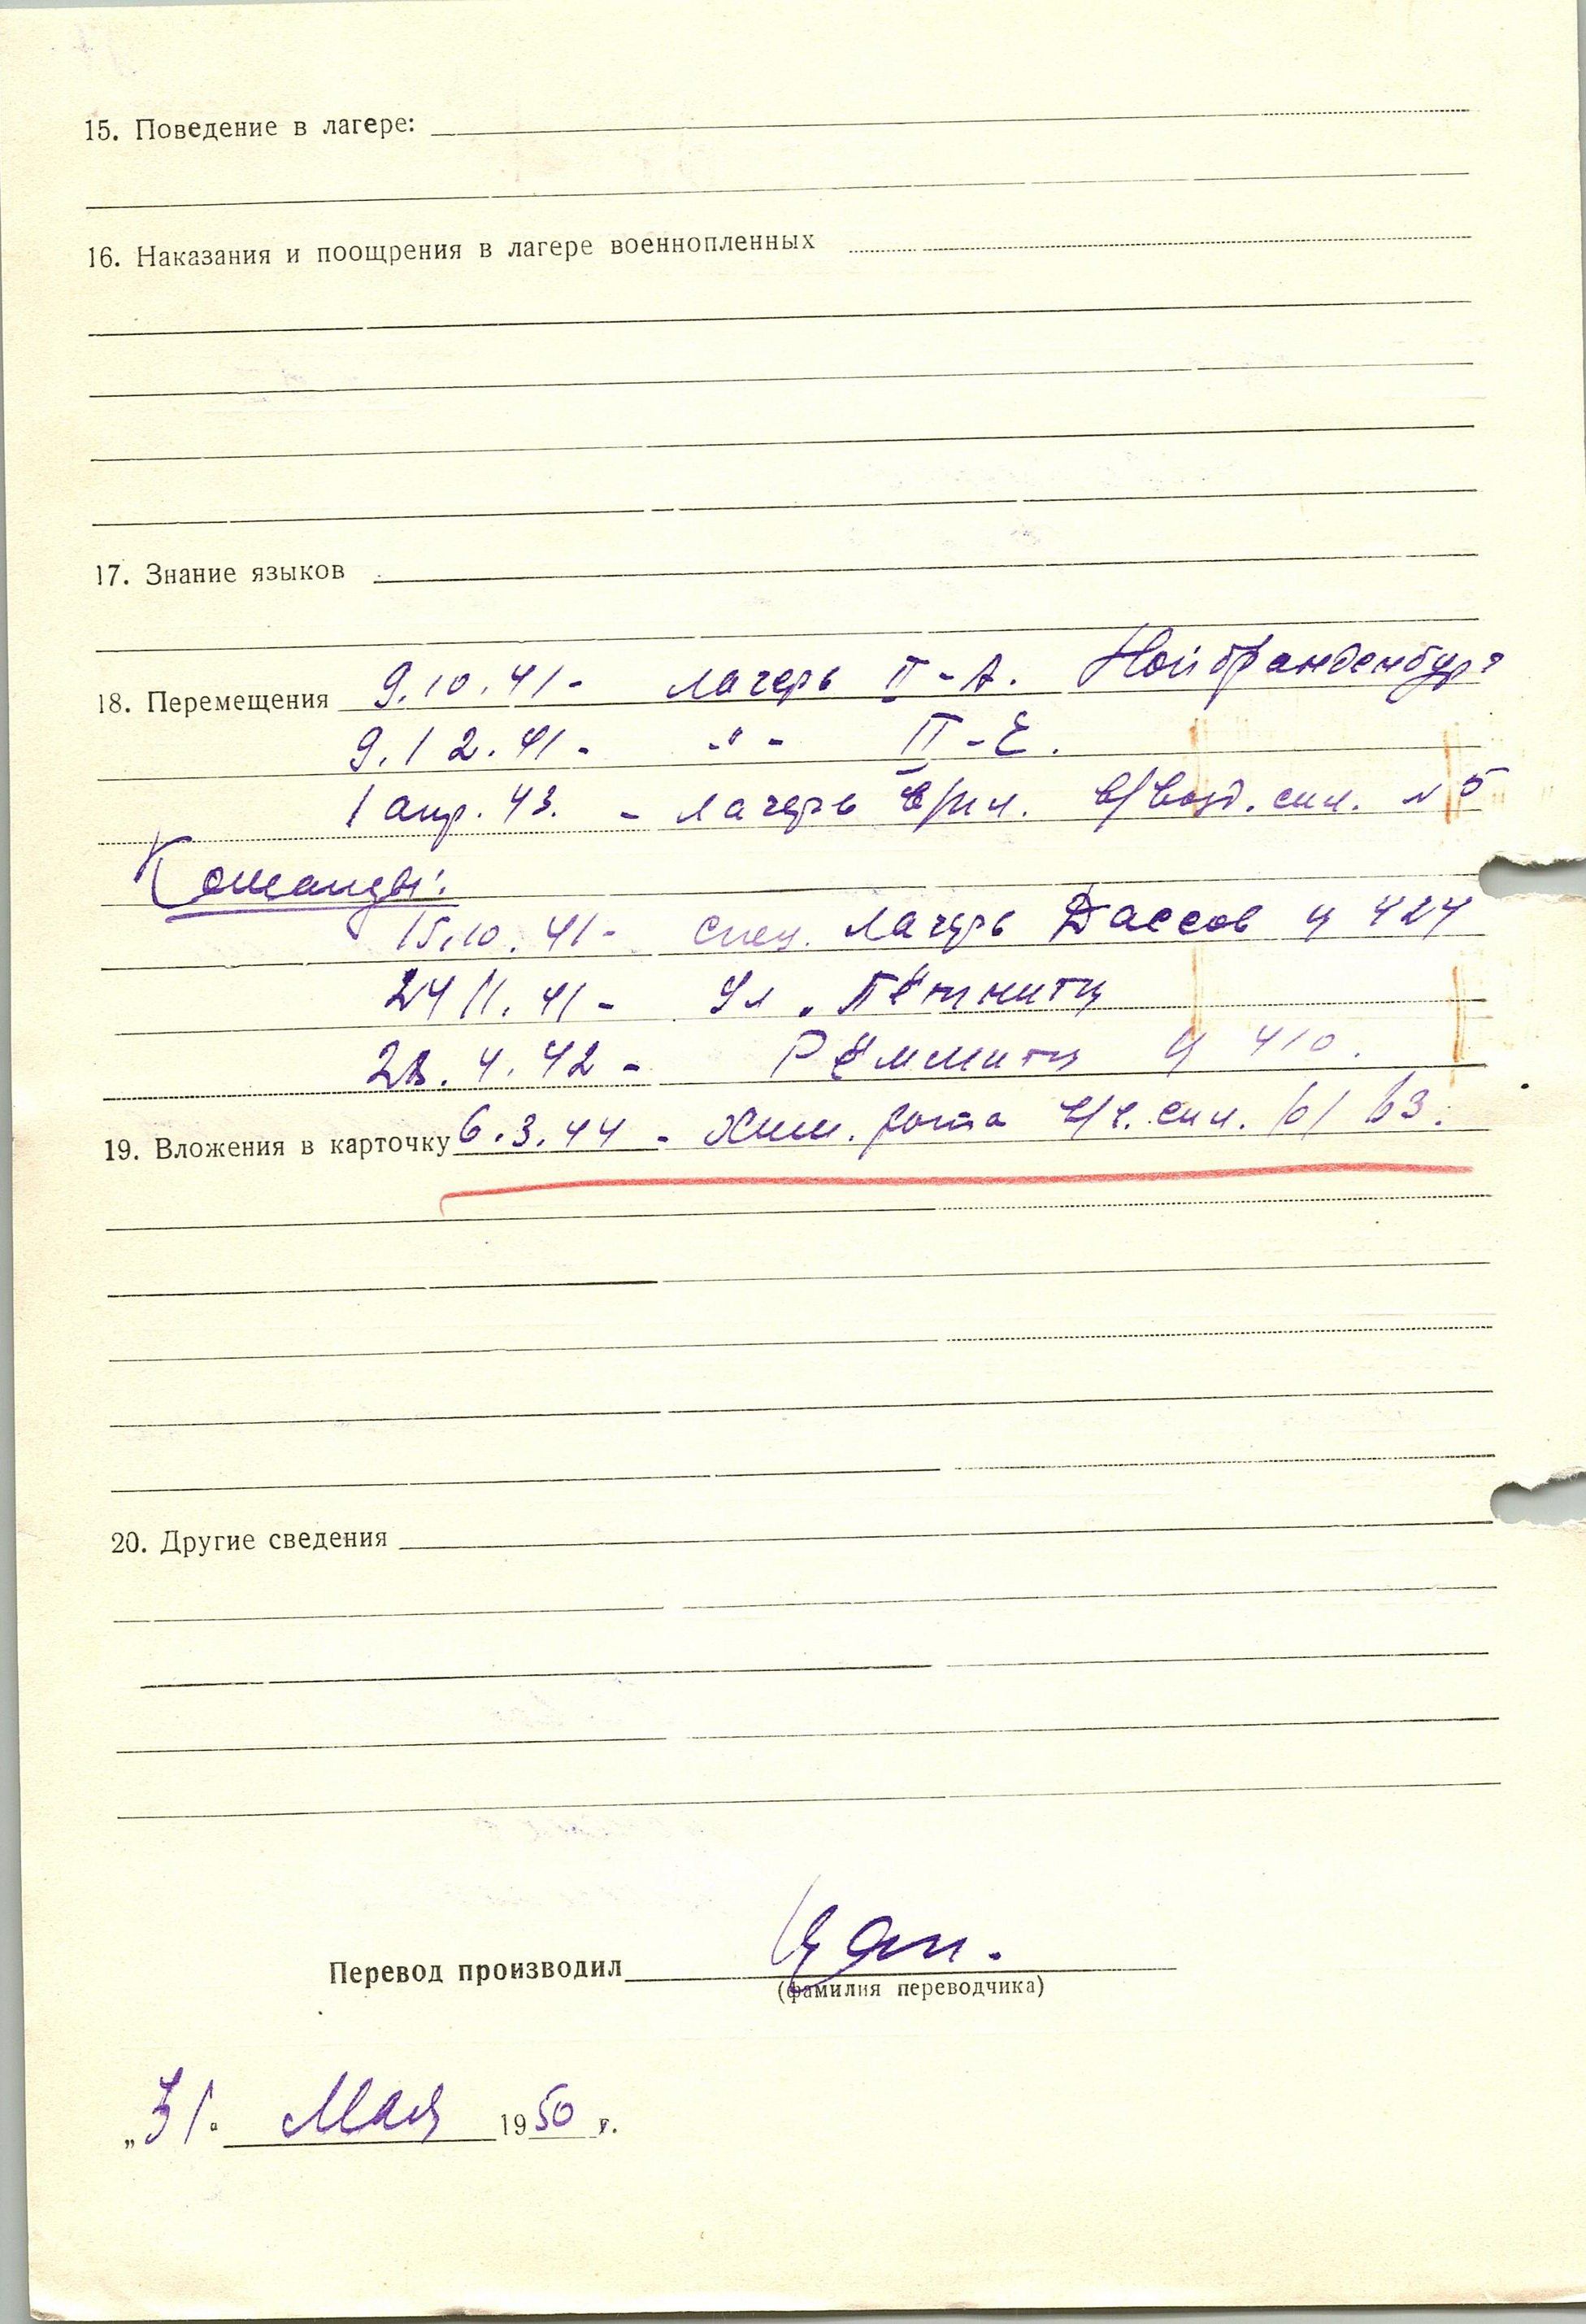 15. Поведение в лагере:
16. Наказания и поощрения в лагере военнопленных
17. Знание языков
18. Перемещения 9.10.41 - лагерь II-А. Нойбранденбург
9.12.41 - -"- II-Е.
1 апр. 43. - лагерь в/пл. в/возд. сил. № 5
Команды:
15.10.41 - спец. лагерь Дассов Ц 424
24 11. 41 -
28. 4. 42 - Рёмнитц Ц 410.
19. Вложения в карточку 6.3.44 - Хим. рота сил.
20. Другие сведения
Перевод производил
(фамилия переводчика)
„31" Мая 1950 г.